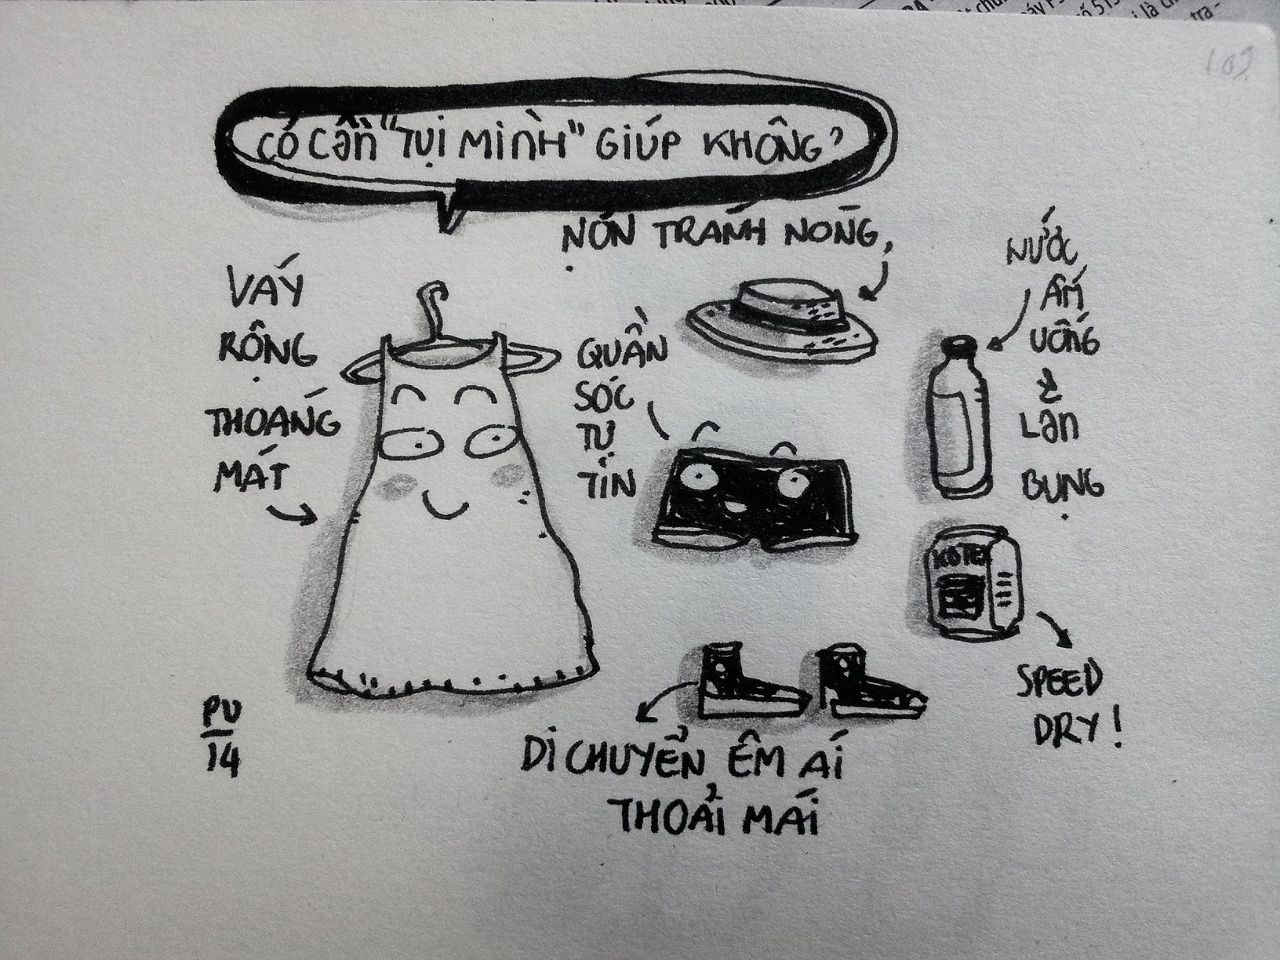 CÓ CẦN "TỤI MÌNH" GIÚP KHÔNG?
VÁY
RỘNG
THOÁNG
MÁT
NÓN TRÁNH NÓNG,
QUẦN
SÓC
TỰ
TIN
NƯỚC
ẤM
UỐNG
&
LĂN
BỤNG
KOTEX
SPEED
DRY!
DI CHUYỂN ÊM ÁI
THOẢI MÁI
PU
14
109